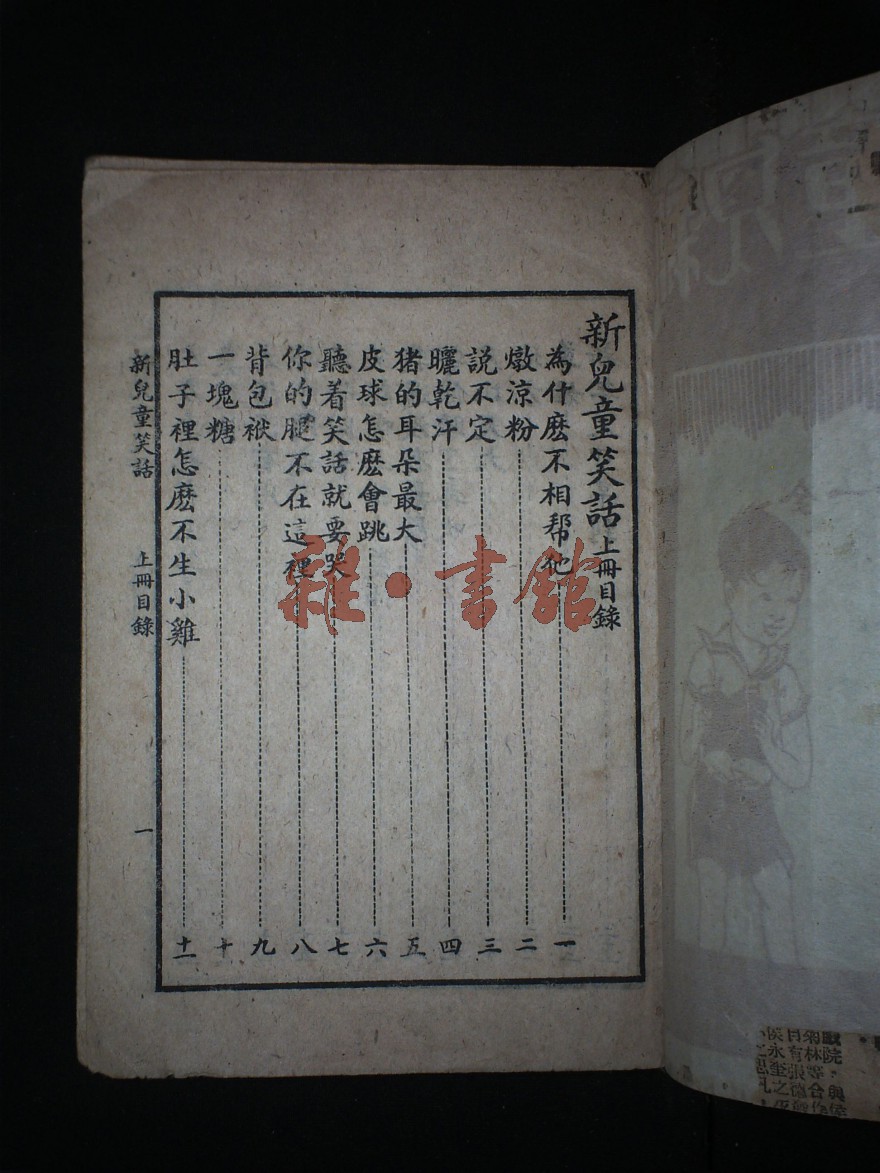 新兒童笑話 上冊目錄
為什麽不相帮他 一
燉涼粉 二
説不定 三
曬乾汗 四
猪的耳朵最大 五
皮球怎麽會跳 六
聽着笑話就要哭 七
你的腿不在這裡 八
背包袱 九
一塊糖 十
肚子裡怎麽不生小雞 十一
新兒童笑話 上冊目錄 一
雜·書館